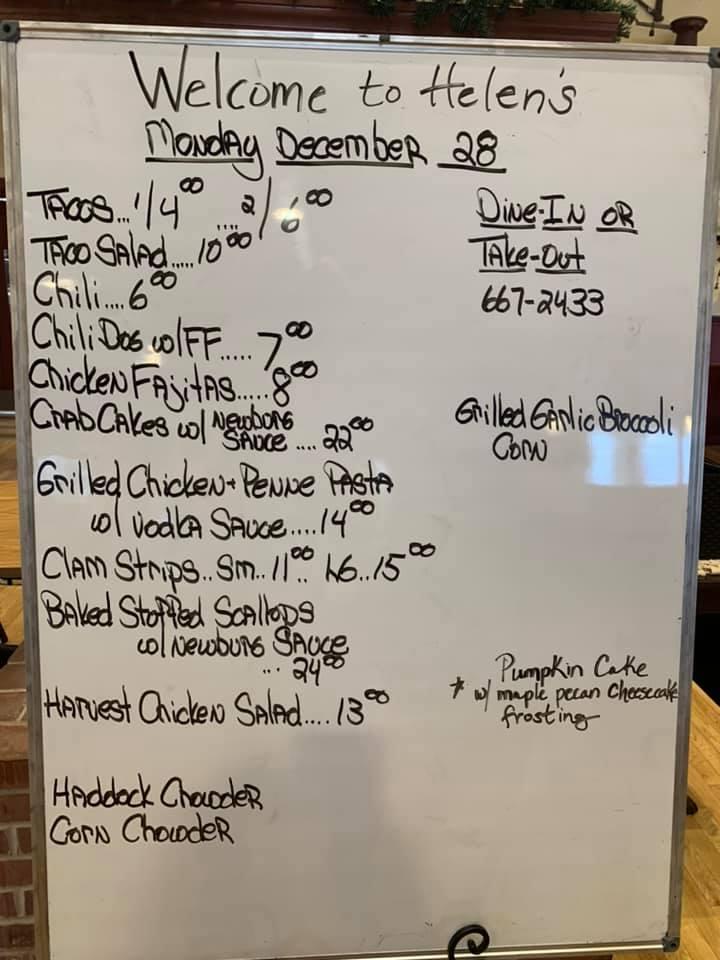 Welcome to Helen's
Monday December 28
Tacos...1/4.00 ....2/6.00
Taco Salad.....10.00
Chili....6.00
Chili Dog w/FF.....7.00
Chicken Fajitas.....8.00
Crab Cakes w/ Newburg
Sauce ....22.00
Grilled Chicken + Penne Pasta
w/ Vodka Sauce....14.00
Clam Strips..Sm..11.00.. LG..15.00
Baked Stuffed Scallops
w/ Newburg Sauce
...24.00
Harvest Chicken Salad....13.00
Haddock Chowder
Corn Chowder
Dine-In or
Take-Out
667-2433
Grilled Garlic Broccoli
Corn
Pumpkin Cake
* w/ maple pecan cheesecake
frosting